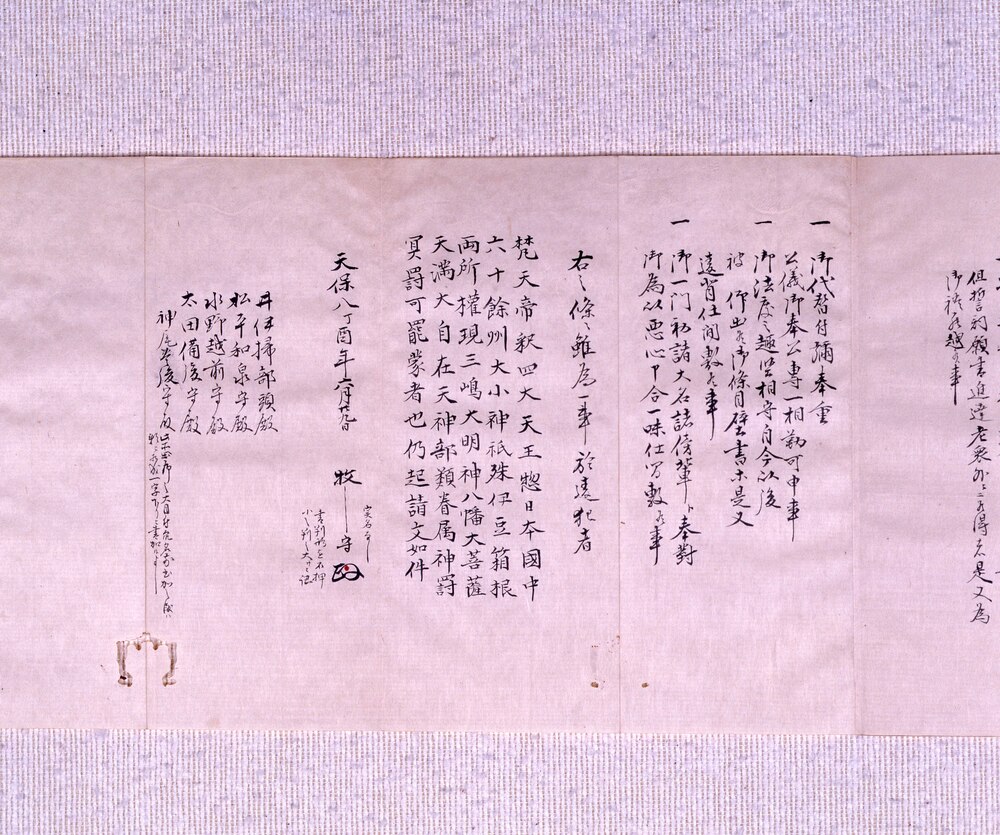 俎誓詞願書進達老衆外ニ不得者是又為
一 御代替付彌奉重
公儀御奉公專一相勤可申事
一 御法度之趣堅相守自今以後
被 仰出候御條目壁書等是又
違背仕間敷候事
一 御一門初諸大名諸傍輩ト奉對
御為以悪心申合一味仕間敷候事
右之條々雖為一事於違犯者
梵天帝釈四大天王惣日本國中
六十餘州大小神祇殊伊豆箱根
両所權現三嶋大明神八幡大菩薩
天満大自在天神部類眷属神罰
冥罸可罷蒙者也仍起請文如件
天保八丁酉年六月廿九日
牧 守
実名
書判形を不押
井伊掃部頭殿
松平和泉守殿
水野越前守殿
太田備後守殿